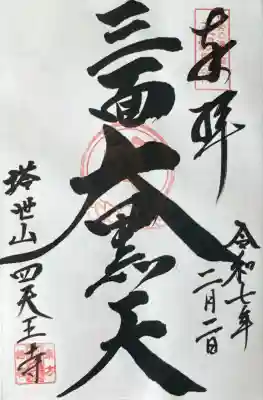 奉拝
令和七年
二月二日
三面大黒天
塔世山 四天王寺